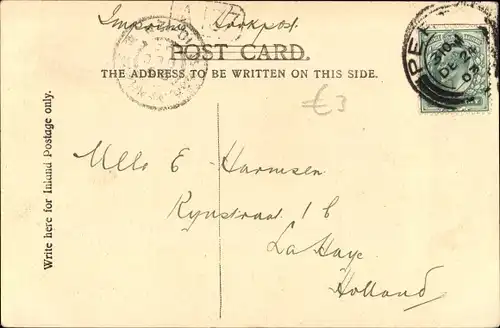 POST CARD.
THE ADDRESS TO BE WRITTEN ON THIS SIDE.
£3
Write here for Inland Postage only.
Mlle E Harmsen
Rynstraat 1 b
La Haye
Holland